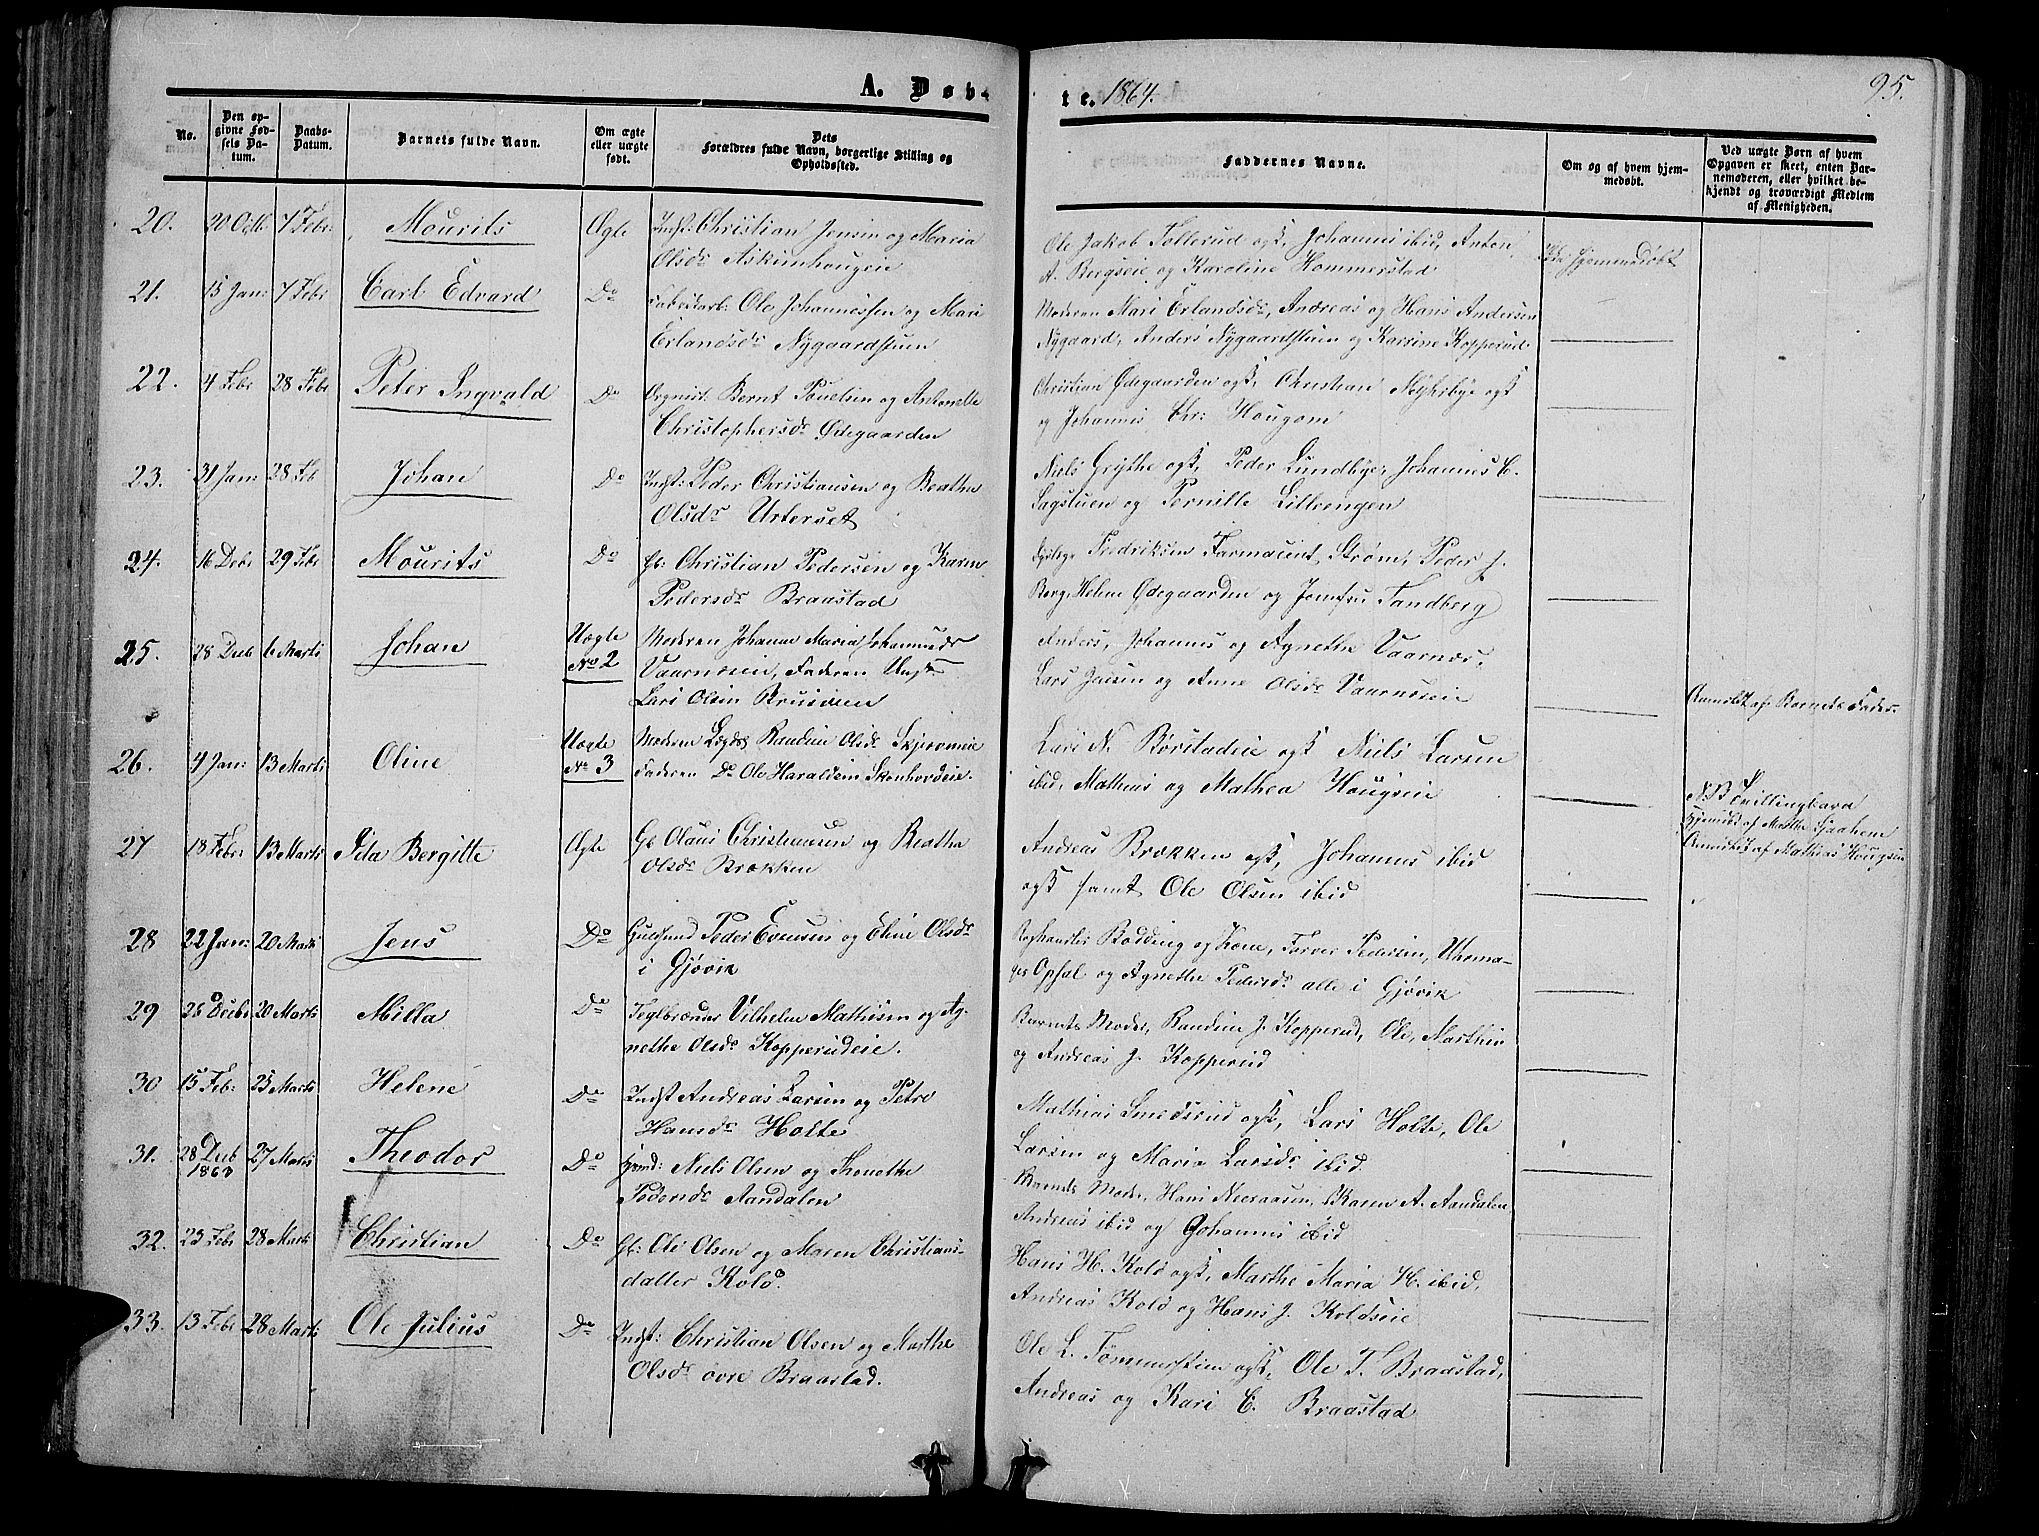 A. Døbte. 1864. 95.
No.
Den opgivne Fødsels Datum.
Daabs-Datum.
Barnets fulde Navn.
Om ægte eller uægte født.
Dets Forældres fulde Navn, borgerlige Stilling og Opholdssted.
Faddernes Navne.
Om og af hvem hjemmedøbt.
Ved uægte Børn af hvem Opgaven er skeet, enten Barnemoderen, eller hvilket bekjendt og troværdigt Medlem af Menigheden.
20. 20 Octb. 7 Febr. Mourits Ægte Indst: Christian Jensen og Maria
Olsdr Askimhougeie
Ole Jakob Tollerud ogk, Johannes ibid, Anton
A. Bergseie og Karoline Hommerstad
Hjemmedøbt
21. 15 Jan: 7 Febr Carl Edvard Do Ole Johannessen og Mari
Erlandsdr Nygaardstuen
Moderen Mari Erlandsdr, Andreas og Hans Andersen
Nygaard, Anders Nygaardstuen og Karine Kopperud
22. 4 Febr 28 Febr Peter Ingvald Do Bernt Pouelsen og Antonette
Christophersdr Ødegaarden
Christian Ødegaarden ogk, Christian Myhrbye ogk
og Johannes Chr: Hougom
23. 31 Jan: 28 Feb Johan Do Indst: Peder Christiansen og Beathe
Olsdr Urterset
Niels Grythe ogk, Peder Lundbye, Johannes C.
Sagstuen og Pernille Lilleengen
24. 16 Debr 29 Febr Mourits Do Gb: Christian Pedersen og Karen
Pedersdr Braastad
Fredriksen Farmaceut Strøm, Peder J.
Berg, Helene Ødegaarden og Jomfru Tandberg
25. 28 Decb 6 Marts Johan Uægte No 2 Moderen Johanne Maria Johannesdr
Vaarnæseie, Faderen Ungk
Lars Olsen Brusveen
Anders, Johannes og Agnethe Vaarnæs,
Lars Jensen og Anne Olsdr Vaarnæseie
Anmeldt af Barnets Fader
26. 4 Jan: 13 Marts Oline Uægte No 3 Moderen Randine Olsdr
Faderen Do Ole Haraldsen
Lars N. Borstadeie ogk Niels Larsen
ibid, Mathias og Mathea Hougseie
N.B. Tvillingbarn
Anmeldt af Mathias Hougseie
27 18 Febr: 13 Marts Pela Bergitte Ægte Gb Olaus Christiansen og Beathe
Olsdr Brækken
Andreas Brækken ogk, Johannes ibid
ogk samt Ole Olsen ibid
28 22 Jan: 20 Marts Jens Do Peder Evensen og Eline Olsdr
i Gjøvik
Bødding og Kone, Farver Pedersen,
Opsal og Agnethe Pedersdr alle i Gjøvik
29 26 Decbr 20 Marts Milla Do Teglbrænder Vilhelm Mathisen og Ag-
nethe Olsdr Kopperudeie.
Barnets Moder, Randine J. Kopperud, Ole, Marthin
og Andreas J. Kopperud
30 15 Feb: 25 Marts Helene Do Indst Andreas Larsen og Petra
Hansdr Holte
Mathias Smedsrud ogk, Lars Holte, Ole
Larsen og Maria Larsdr ibid
31. 28 Decb 1863 27 Marts Theodor Do Niels Olsen og Agnethe
Pedersdr Aandalen
Barnets Moder, Hans Karen A. Aandalen
Andreas ibid og Johannes ibid
32. 23 Febr 28 Marts Christian Do Gb: Ole Olsen og Maren Christians-
datter Kolo.
Hans H. Kolo ogk, Marthe Maria H. ibid,
Andreas Kolo og Hans J. Koloseie
33. 13 Febr 28 Marts Ole Julius Do Indst: Christian Olsen og Marthe
Olsdr øvre Braastad.
Ole L. Tømmerstuen ogk, Ole T. Braastad,
Andreas og Kari C. Braastad